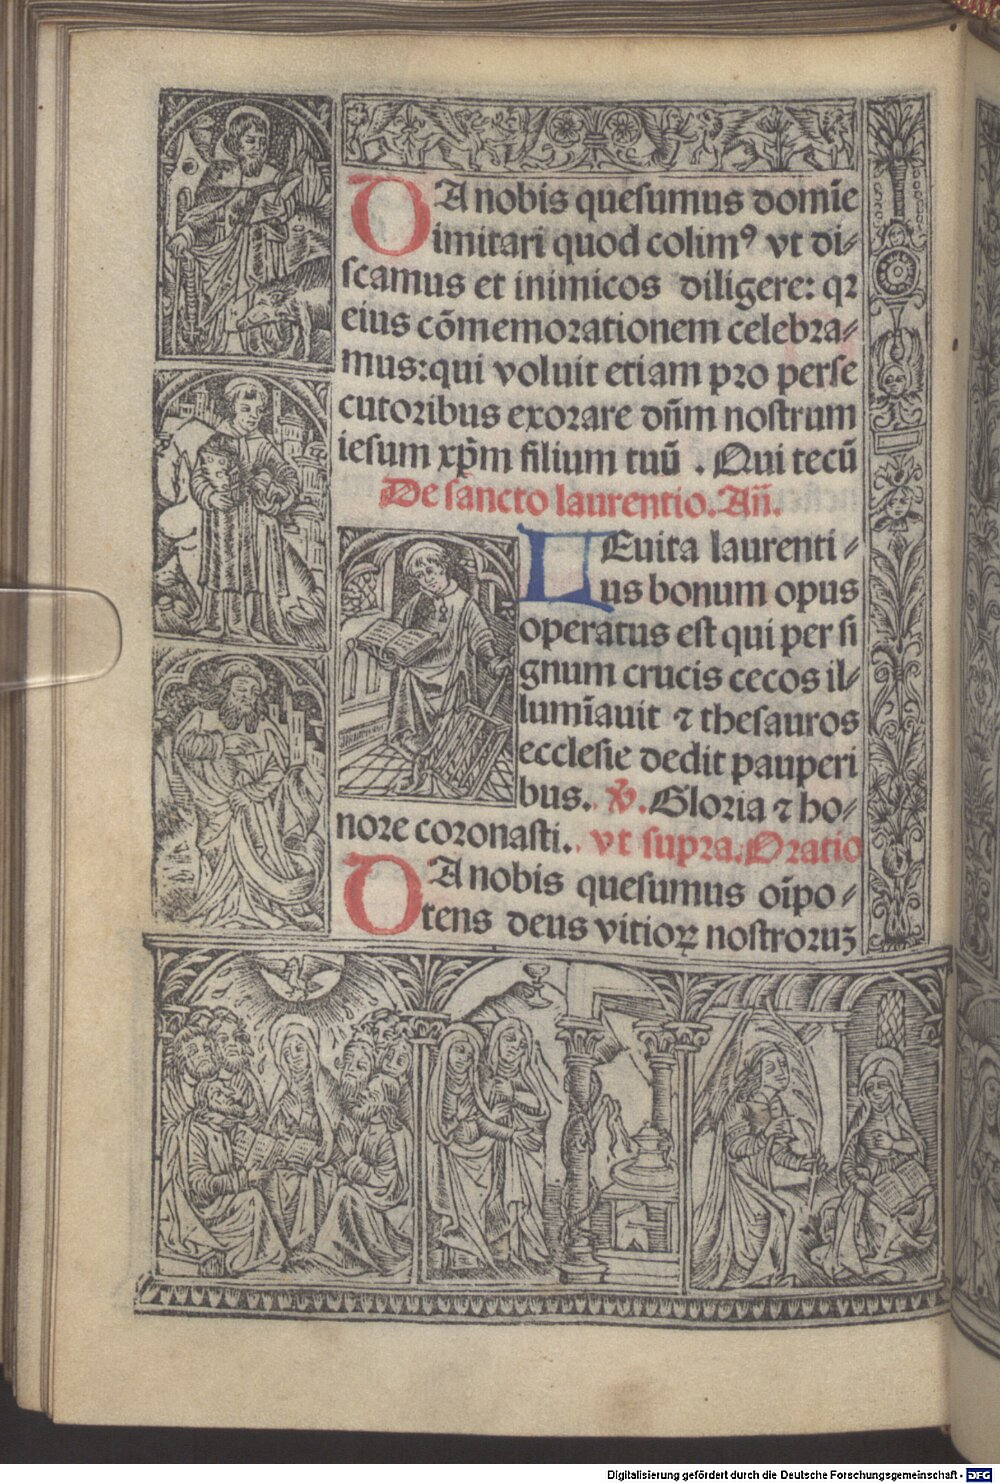 DA nobis quesumus domīe
imitari quod colimꝰ vt di⸗
scamus et inimicos diligere: qꝛ
eius cōmemorationem celebra⸗
mus: qui voluit etiam pro perse
cutoribus exorare dn̄m nostrum
iesum xp̄m filium tuū . Qui tecū
De sancto laurentio. Añ.
LEuita laurenti⸗
us bonum opus
operatus est qui per si
gnum crucis cecos il⸗
lumīauit ⁊ thesauros
ecclesie dedit pauperi
bus. ℣. Gloria ⁊ ho⸗
nore coronasti. vt supra. Oratio
DA nobis quesumus oīpo⸗
tens deus vitioꝝ nostroruꝫ
Digitalisierung gefördert durch die Deutsche Forschungsgemeinschaft - DFG